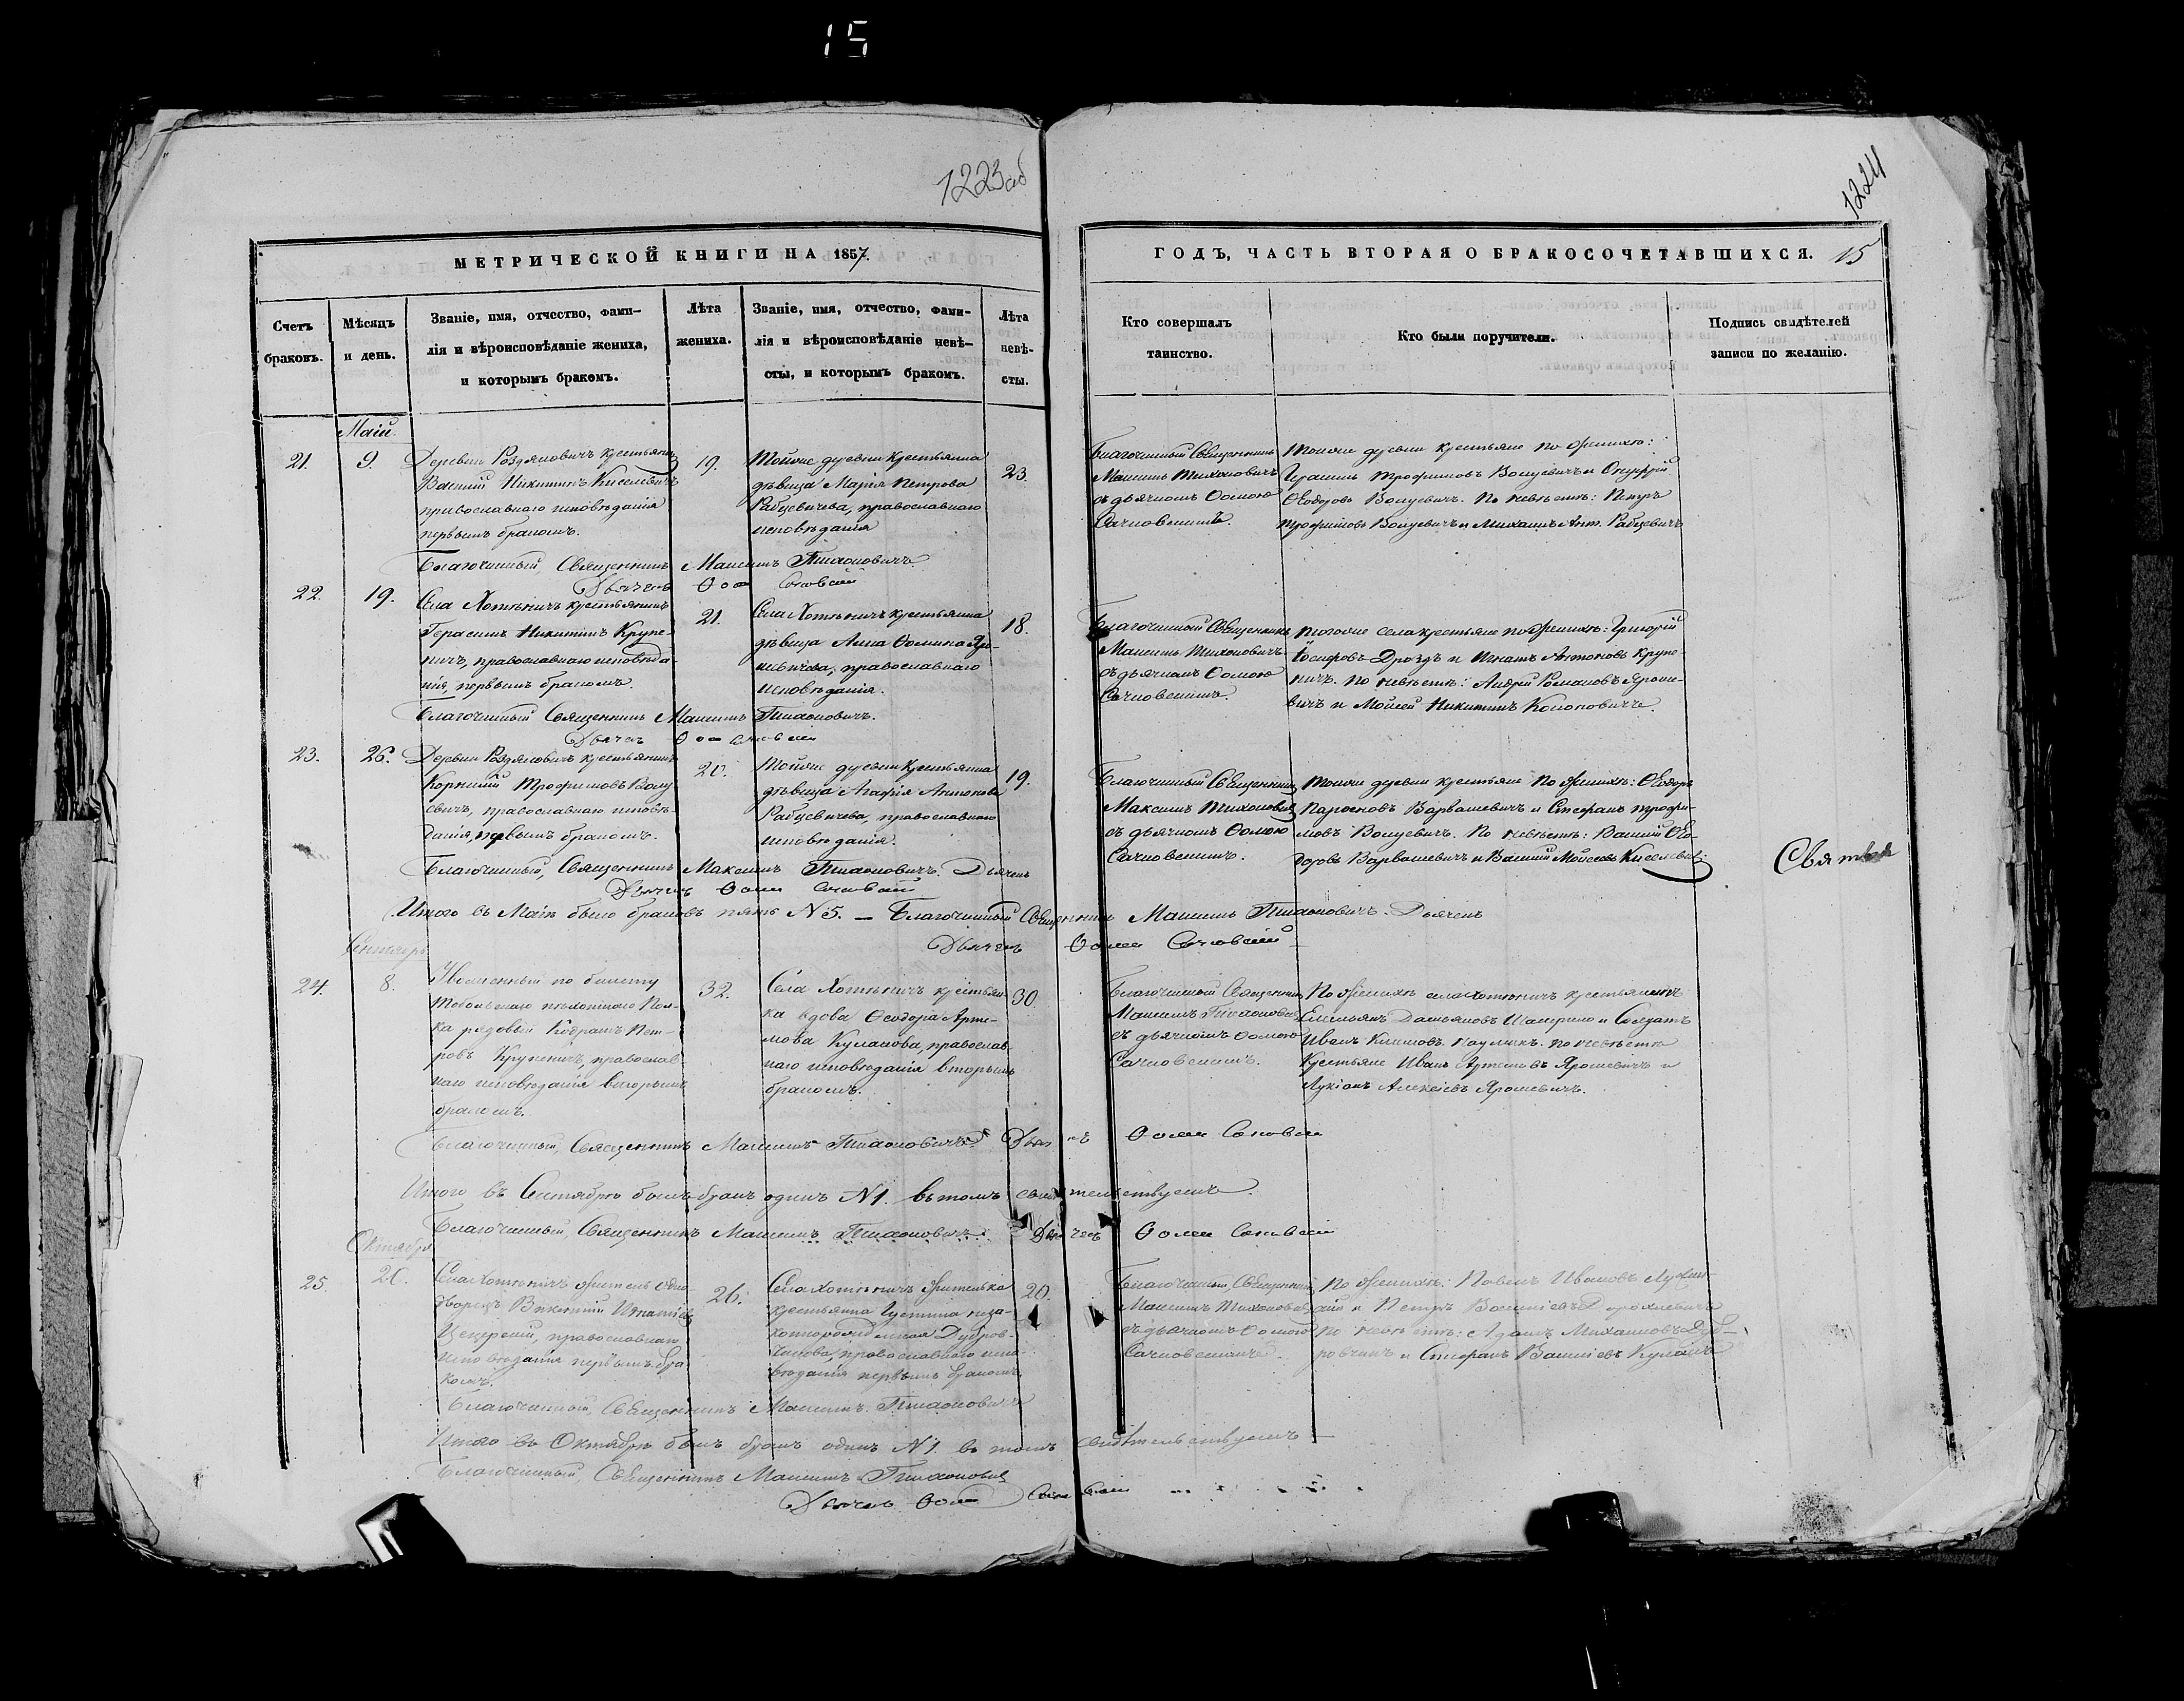 15
1223 об
1224
МЕТРИЧЕСКОЙ КНИГИ НА 1857.
ГОДЪ, ЧАСТЬ ВТОРАЯ О БРАКОСОЧЕТАВШИХСЯ. 15
Счетъ браковъ.
Мѣсяцъ и день.
Званіе, имя, отчество, фами-
лія и вѣроисповѣданіе жениха,
и которымъ бракомъ.
Лѣта жениха.
Званіе, имя, отчество, фами-
лія и вѣроисповѣданіе невѣ-
сты, и которымъ бракомъ.
Лѣта невѣ-
сты.
Кто совершалъ
таинство.
Кто были поручители.
Подпись свидѣтелей
записи по желанію.
Маій.
21. 9.
Деревни Роздяловичъ крестьянинъ
Василій Никитинъ Киселевичъ
православнаго исповѣданія
первымъ бракомъ.
19.
Тойже деревни крестьянка
дѣвица Марія Петрова
Рабцевичева, православнаго
исповѣданія
23.
Благочинный Священникъ
Максимъ Тихоновичъ
съ дьячкомъ Ѳомою
Тойже деревни крестьяне по женихѣ:
Герасимъ Трофимовъ Волуевичъ и Онуфрій
Ѳеодоровъ Волуевичъ. По невѣстѣ: Петръ
Трофимовъ Волуевичъ и Михаилъ Ант. Рабцевичъ
Благочинный, Священникъ Максимъ Тихоновичъ
Дьячекъ Ѳома
22. 19.
Села Хотыничъ крестьянинъ
Герасимъ Никитинъ Крупе-
ничъ, православнаго исповѣда-
нія, первымъ бракомъ.
21.
Села Хотыничъ крестьянка
дѣвица Анна Ѳомина Яро-
шевичева, православнаго
исповѣданія.
18.
Благочинный Священникъ
Максимъ Тихоновичъ
съ дьячкомъ Ѳомою
тогоже села крестьяне по женихѣ: Григорій
Іосифовъ Дроздъ и Игнатъ Антоновъ Крупе-
ничъ. По невѣстѣ: Андрей Романовъ Яроше-
вичъ и Мойсей Никитинъ
Благочинный Священникъ Максимъ Тихоновичъ.
Дьячекъ Ѳома
23. 26.
Деревни Роздяловичъ крестьянинъ
Корнилій Трофимовъ Волу-
евичъ, православнаго исповѣ-
данія, первымъ бракомъ.
20.
Тойже деревни крестьянка
дѣвица Агафія Антонова
Рабцевичева, православнаго
исповѣданія.
19.
Благочинный Священникъ
Максимъ Тихоновичъ
съ дьячкомъ Ѳомою
Тойже деревни крестьяне по женихѣ: Ѳеодоръ
Варвашевичъ и Стефанъ Трофи-
мовъ Волуевичъ. По невѣстѣ: Василій Ѳео-
доровъ Варвашевичъ и Василій Мойсеевъ Киселевичъ
Благочинный, Священникъ Максимъ Тихоновичъ. Дьячекъ
Дьячекъ Ѳома
Итого въ Маіѣ было браковъ пять N 5. — Благочинный Священникъ Максимъ Тихоновичъ. Дьячекъ
Дьячекъ Ѳома
Сентябрь
24. 8.
Уволенный по билету
Тобольскаго пѣхотнаго Пол-
ка рядовый Кодратъ Пет-
ровъ Крупеничъ, православ-
наго исповѣданія вторымъ
бракомъ.
32.
Села Хотыничъ крестьян-
ка вдова Ѳеодора Арте-
мова Кулакова, православ-
наго исповѣданія вторымъ
бракомъ.
30
Благочинный Священникъ
Максимъ Тихоновичъ
съ дьячкомъ Ѳомою
По женихѣ села Хотыничъ крестьянинъ
Емельянъ Демьяновъ и Солдатъ
Иванъ Климовъ. по невѣстѣ
Крестьяне Иванъ Артемовъ Ярошевичъ и
Лукіанъ Алексіевъ Ярошевичъ.
Благочинный, Священникъ Максимъ Тихоновичъ Дьячекъ Ѳома
Итого въ Сентябрѣ былъ бракъ одинъ N 1. въ томъ свидѣтельствуемъ.
Благочинный, Священникъ Максимъ Тихоновичъ Дьячекъ Ѳома
Октября
25. 20.
Села Хотыничъ житель одно-
дворецъ Викентій Игнатіевъ
православнаго
исповѣданія первымъ бра-
комъ.
26.
Села Хотыничъ жителька
крестьянка Іустина неза-
коннорожденная Дубров-
православнаго испо-
вѣданія первымъ бракомъ.
20.
Благочинный, Священникъ
Максимъ Тихоновичъ
съ дьячкомъ Ѳомою
По женихѣ: Павелъ Ивановъ
и Петръ Василіевъ
по невѣстѣ: Адамъ Михаиловъ Дуб-
ровчикъ и Стефанъ Василіевъ Кулакъ
Благочинный, Священникъ Максимъ Тихоновичъ
Итого въ Октябрѣ былъ бракъ одинъ N 1. въ томъ свидѣтельствуемъ —
Благочинный, Священникъ Максимъ Тихоновичъ
Дьячекъ Ѳома